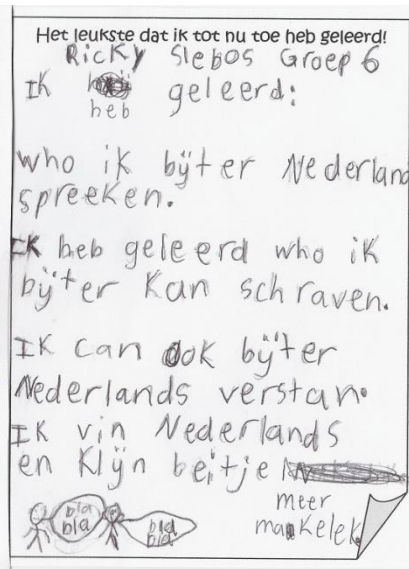 Het leukste dat ik tot nu toe heb geleerd!
Ricky Slebos Groep 6
IK heb geleerd:
who ik bÿter Nederland
spreeken.
IK heb geleerd who ik
bÿter Kan schraven.
IK can ook bÿter
Nederlands verstan.
IK vin Nederlands
en Klÿn beitje
meer
makelek.
bla
bla
bla
bla